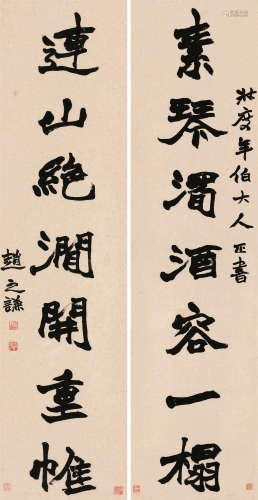 年伯大人正書
素琴濁酒容一榻
連山絕澗開重帷
趙之謙